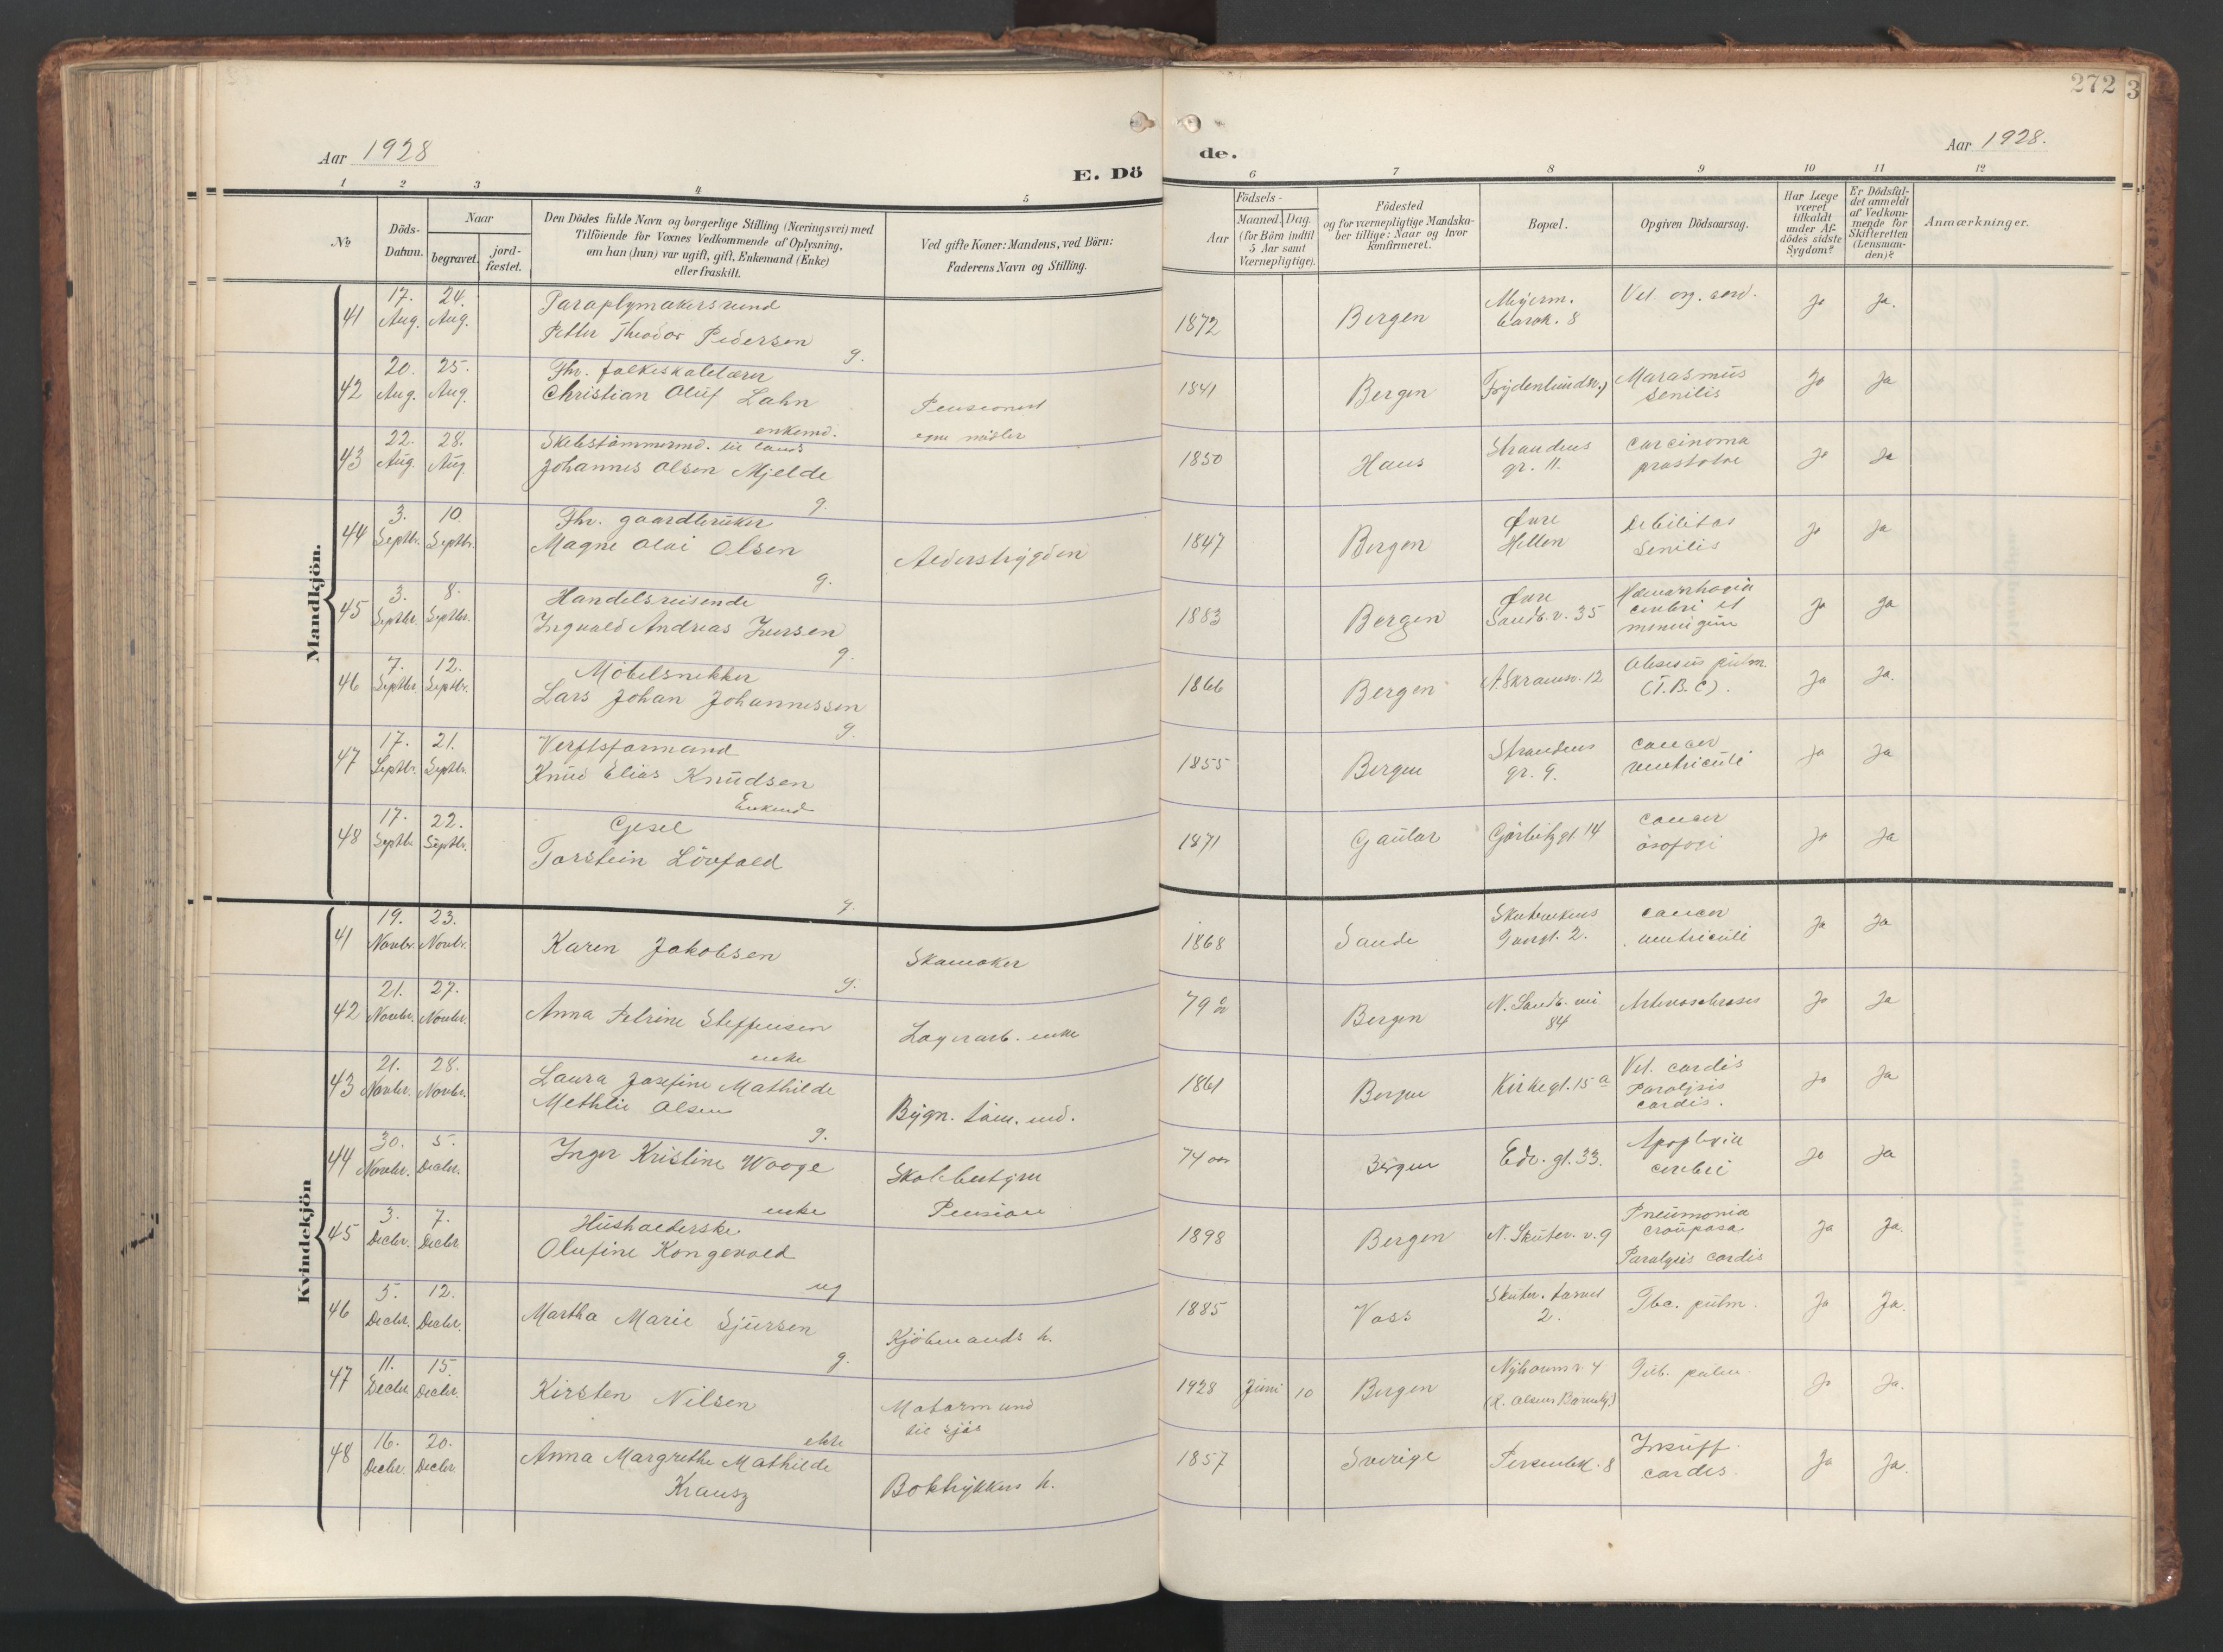 272
3
Aar 1928
E. Dö
de.
Aar 1928.
1 2 3 4 5 6 7 8 9 10 11 12
№
Döds-
Datum.
Naar
begravet.
jord-
fæstet.
Den Dödes fulde Navn og borgerlige Stilling (Næringsvei) med
Tilföiende for Voxnes Vedkommende af Oplysning,
om han (hun) var ugift, gift, Enkemand (Enke)
eller fraskilt.
Ved gifte Koner: Mandens, ved Börn:
Faderens Navn og Stilling.
Födsels-
Aar
Maaned.
Dag.
(for Börn indtil
5 Aar samt
Værnepligtige).
Födested
og for værnepligtige Mandska-
ber tillige: Naar og hvor
konfirmeret.
Bopæl.
Opgiven Dödsaarsag.
Har Læge
været
tilkaldt
under Af-
dödes sidste
Sygdom?
Er Dödsfal-
det anmeldt
af Vedkom-
mende for
Skifteretten
(Lensman-
den)?
Anmærkninger.
Mandkjön.
41 17. Aug. 24. Aug.
Petter Theodor Pedersen
g.
1872 Bergen 8 Ja Ja.
42 20. Aug. 25. Aug.
Fhv. folkeskolelærer
Christian Oluf Lahn
enkemd.
Pensionert
1841 Bergen Marasmus
senilis Ja Ja
43 22. Aug. 28. Aug.
Johannes Olsen Mjelde
g.
egne midler
1850 Haus Strandens
gr. 11. Carcinoma
prostatae Ja Ja
44 3. Septbr. 10. Septbr.
Fhv. gaardbruker
Magne Olai Olsen
g.
Alderstrygden
1847 Bergen Øvre
Hellen Debilitas
senilis Ja Ja
45 3. Septbr. 8. Septbr.
Handelsreisende
Ingvald Andreas Iversen
g.
1883 Bergen Øvre
Sandv. v. 35 Hæmorrhagia
cerebri et
meningum Ja Ja
46 7. Septbr. 12. Septbr.
Möbelsnekker
Lars Johan Johannessen
g.
1866 Bergen 12 pulm.
(T.B.C). Ja Ja.
47 17. Septbr. 21. Septbr.
Verftsformand
Knud Elias Knudsen
Enkemd
1855 Bergen Strandens
gr. 9. Cancer
ventriculi Ja Ja
48 17. Septbr. 22. Septbr.
Gjesel
Torstein Lövfald
g.
1871 Gaular Görbitz gt 14 Cancer
Ja Ja
Kvindekjön
41 19. Novbr. 23. Novbr.
Karen Jakobsen
g.
Skomaker
1868 Sande 2. Cancer
ventriculi Ja Ja
42 21. Novbr. 27. Novbr.
Anna Petrine Steffensen
enke
Lagerarb. enke
79 år Bergen N. Sandv. vei
84 Arteriosclerosis Ja Ja
43 21. Novbr. 28. Novbr.
Laura Josefine Mathilde
Methlie Olsen
g.
Bygn. töm. md.
1861 Bergen Kirkegt. 15 a Vit. cordis
Paralysis
cordis. Ja Ja
44 30. Novbr. 5. Decbr.
Inger Kristine Wooge
enke
Skolebestyrer
Pension
74 aar Bergen Edv. gt. 33. Apoplexia
cerebri Ja Ja
45 3. Decbr. 7. Decbr.
Husholderske
Olufine Kongevold
ug
1898 Bergen N. Skutev. v. 9 Pneumonia
crouposa
Paralysis cordis Ja Ja.
46 5. Decbr. 12. Decbr.
Martha Marie Sjursen
g.
Kjöbmands h.
1885 Voss Skutev. torvet
2. Tbc. pulm. Ja Ja.
47 11. Decbr. 15. Decbr.
Kirsten Nilsen
ekte
Motormand
til sjös
1928 Juni 10 Bergen Nyhavnsv. 4
(R. Olsens Barnehj.) Tub. pulm. Ja Ja.
48 16. Decbr. 20. Decbr.
Anna Margrethe Mathilde
Krausz
Boktrykkers h.
1857 Sverige Persenbk. 8 Insuff.
cordis. Ja Ja.